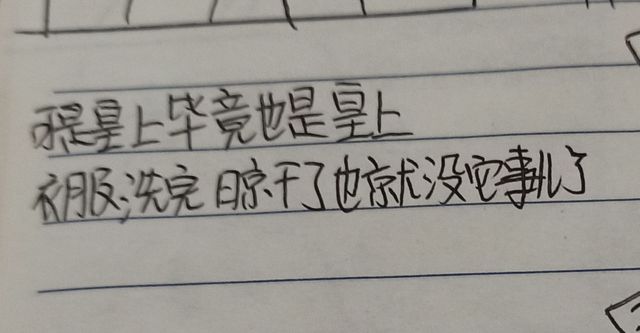 可是皇上毕竟也是皇上
衣服洗完晾干了也就没它事儿了